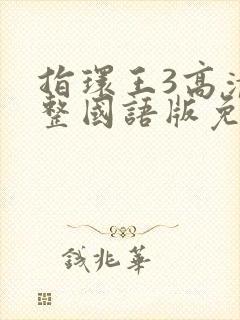 指環王3高清
整國語版免
錢兆華